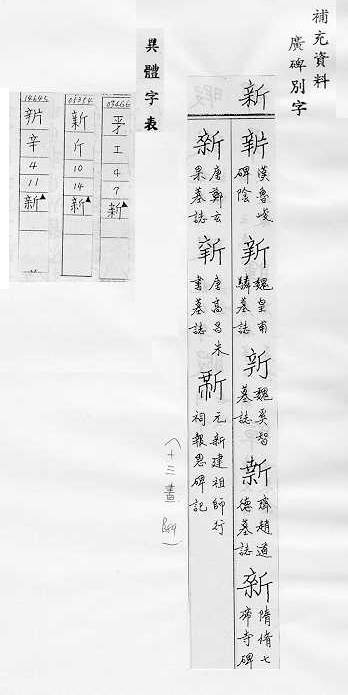 補充資料
廣碑別字
新
漢魯峻碑陰
新
魏皇甫驎墓誌
魏奚智墓誌
新
齊趙道德墓誌
新
隋脩七帝寺碑
新
唐鄭玄果墓誌
唐高昌米書墓誌
元新建祖師行祠報恩碑記
(十三畫
異體字表
辛
4
11
新
新
斤
10
14
新
工
4
7
新